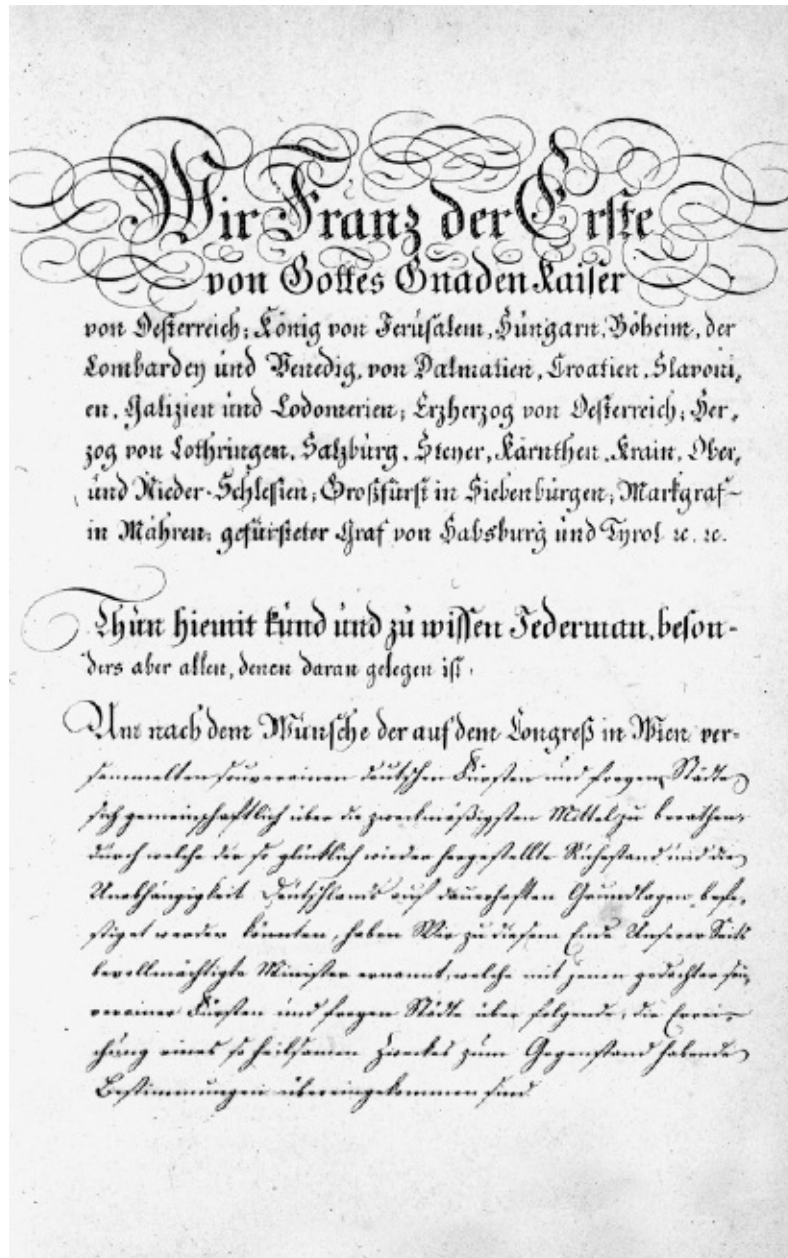 Wir Franz der Erste
von Gottes Gnaden Kaiser
von Oesterreich; König von Jerusalem, Hungarn, Böheim, der
Lombardey und Venedig, von Dalmatien, Croatien, Slavoni,
en, Galizien und Lodomerien; Erzherzog von Oesterreich; Her,
zog von Lothringen, Salzburg, Steyer, Kärnthen, Krain, Ober,
und Nieder-Schlesien; Großfürst in Siebenbürgen; Markgraf
in Mähren; gefürsteter Graf von Habsburg und Tyrol ꝛc. ꝛc.
Thun hiemit kund und zu wissen Jederman, beson-
ders aber allen, denen daran gelegen ist.
Um nach dem Wunsche der auf dem Congreß in Wien ver-
sammelten souverainen deutschen Fürsten und freyen Städte
sich gemeinschaftlich über die zweckmäßigsten Mittel zu berathen,
durch welche der so glücklich wieder hergestellte Ruhestand und die
Unabhängigkeit Deutschlands auf dauerhaften Grundlagen befe,
stiget werden könnten, haben Wir zu diesem Ende Unserer Seits
bevollmächtigte Minister ernannt, welche mit jenen gedachter sou,
verainer Fürsten und freyen Städte über folgende, die Errei-
chung eines so heilsamen Zweckes zum Gegenstand habende
Bestimmungen übereingekommen sind.